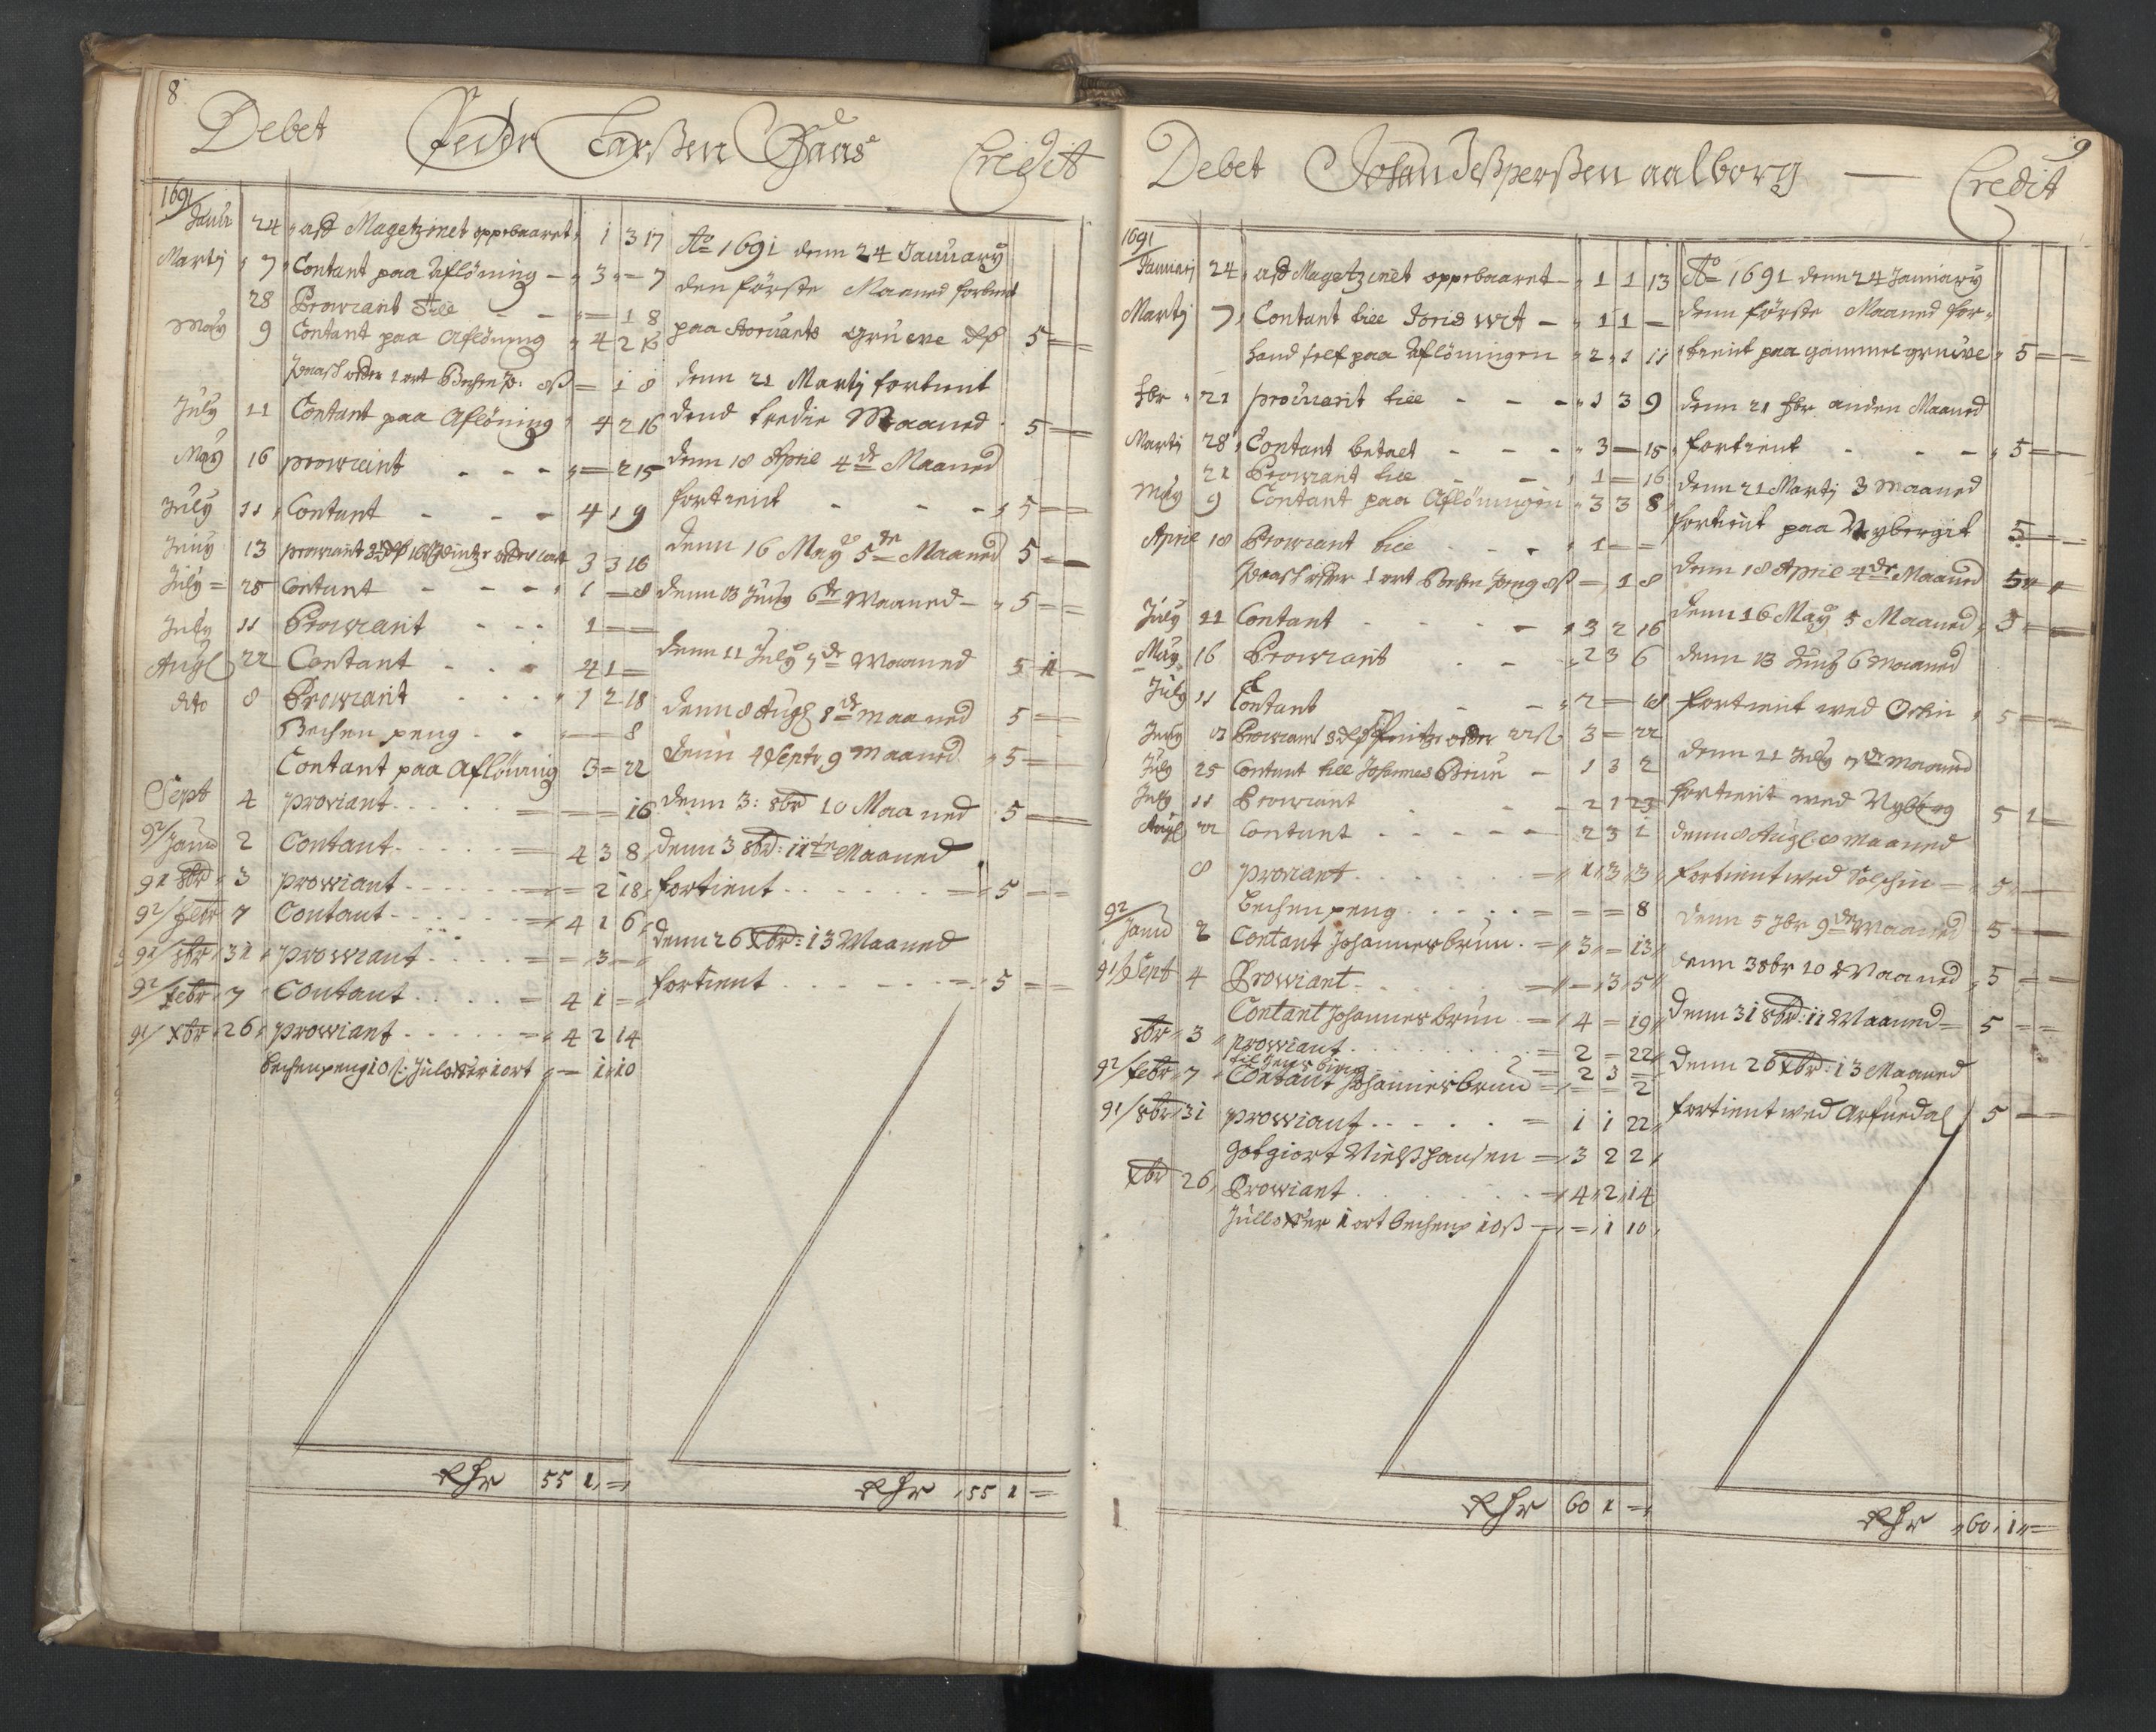 8
Debet Peder Larßen Haas Credit
1691
Janu 24 aff Magetzinet oppebaaret 1 3 17
Martij 7 Contant paa Aflöning 3 = 7
28 Prowiant till = 1 8
May 9 Contant paa Aflöning 4 2 16
Paasch offer 1 ort Bechen p: 8ß = 1 8
July 11 Contant paa Aflöning 4 2 16
May 16 prowiant = 2 15
July 11 Contant 4 1 9
Juny 13 prowiant 3 3 16
July 25 Contant 1 = 8
July 11 Prowiant 1 = =
Augl 22 Contant 4 1 =
dto 8 Prowiant 1 2 18
Bechen peng = = 8
Contant paa Aflöning 3 = 22
Sept 4 proviant = = 16
92/Janu 2 Contant 4 3 8
91 8br 3 prowiant = 2 18
92/febr 7 Contant 4 1 6
91/8br 31 prowiant = 3 =
92/febr 7 Contant 4 1 =
91/Xbr 26 prowiant 4 2 14
bechenpeng 10ß: Juloffer 1 ort = 1 10
Rdr 55 1 =
Ao 1691 denn 24 January
den förste Maaned fortient
paa Storvarts Gruwe 5 = =
denn 21 Martij fortient
dend tredie Maaned 5 = =
denn 18 April 4de Maaned
fortient 5 = =
denn 16 May 5te Maaned 5 = =
denn 13 Juny 6te Maaned 5 = =
denn 11 July 7de Maaned 5 1 =
denn 8 Augl 8de maaned 5 = =
denn 4 Septr 9 maaned 5 = =
denn 3: 8br 10 Maaned 5 = =
denn 3 8br: 11te Maaned
fortient 5 = =
denn 26 Xbr: 13 Maaned
fortient 5 = =
Rdr 55 1 =
9
Debet Johan Jeßperßen aalborg Credit
1691
Januarj 24 aff Magetzinet oppebaaret 1 1 13
Martij 7 Contant till Joris Wit 1 1 =
hand self paa Aflöningen 2 1 11
fbr 21 proviant till 1 3 9
Martj 28 Contant betalt 3 = 15
21 Prowiant till 1 = 16
May 9 Contant paa Aflöningen 3 3 8
April 18 Prowiant till 1 = =
Paasch offer 1 ort Bechen peng 8ß = 1 8
July 11 Contant 3 2 16
May 16 Prowiant 2 3 6
July 11 Contant 2 =
Juny 13 Prowiant 3 = 22
July 25 Contant till Johannes Bruun 1 3 2
July 11 Prowiant 2 1 23
Augl 22 Contant 2 3 1
8 proviant 1 3 3
bechen peng = = 8
92/Janu 2 Contant Johannes brun 3 = 13
91/Sept 4 Prowiant = 3 5
Contant Johannes brun 4 = 19
8br 3 prowiant 2 = 22
til Jens 2 3 =
92/febr 7 Contant Johannes brun = = 2
91/8br 31 prowiant 1 1 22
gotgiort Nielß Hansen 3 2 2
Xbr 26 Prowiant 4 2 14
Julloffer 1 ort bechenp 10ß = 1 10
Rdr 60 1 =
Ao 1691 denn 24 January
denn förste Maaned for-
tient paa gammel gruwe 5 = =
denn 21 fbr anden Maaned
fortient 5 = =
denn 21 Martj 3 Maaned
fortient paa Nybergit 5 = =
denn 18 April 4de Maaned 5 = =
denn 16 May 5 Maaned 5 = =
denn 13 Juny 6 maaned
fortient wed Orkin 5 = =
denn 11 July 7de maaned
fortient wed Nyberg 5 1 =
denn 8 Augl. 8 maaned
fortient wed Solschin 5 = =
denn 5 7br 9de Maaned 5 = =
denn 3 8br 10 Maaned 5 = =
denn 31 8br: 11 Maaned 5 = =
denn 26 Xbr: 13 Maaned
fortient wed Arfuedal 5 = =
Rdr 60 1 =